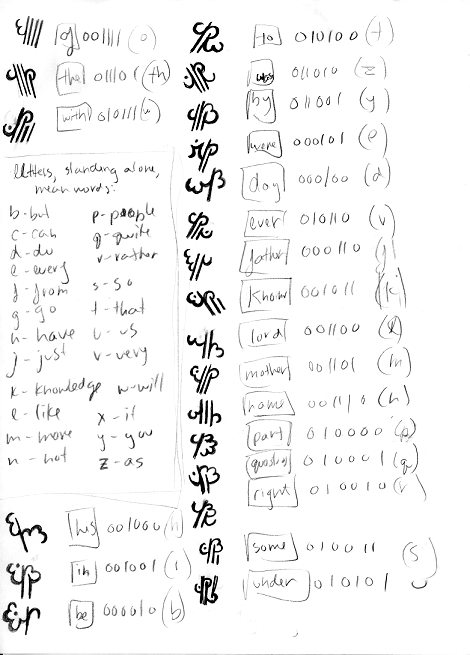 of 001111 (o)
the 011101 (th)
with 010111 (w)
letters, standing alone,
mean words:
b-but p-people
c-can q-quite
d-do r-rather
e-every
f-from s-so
g-go t-that
h-have u-us
j-just v-very
k-knowledge w-will
l-like x-it
m-more y-you
n-not z-as
his 001000 (h)
in 001001 (i)
be 000010 (b)
to 010100 (t)
was 011010 (z)
by 011001 (y)
were 000101 (e)
day 000100 (d)
ever 010110 (v)
father 000110 (f)
know 001011 (k)
lord 001100 (l)
mother 001101 (m)
name 001110 (n)
part 010000 (p)
question 010001 (q)
right 010010 (r)
some 010011 (s)
under 010101 u